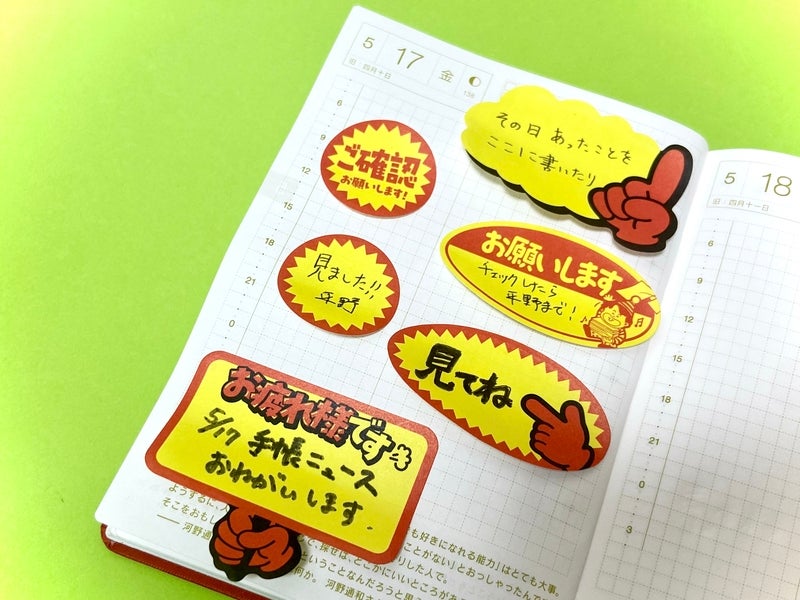 5
17
金
旧：四月十日
138
6
9
12
15
18
21
0
ご確認
お願いします!
その日 あったことを
ここに書いたり
見ました!!
平野
お願いします
チェックしたら
平野まで!
見てね
お疲れ様です
5/17 手帳ニュース
おねがいします.
も好きになれる能力」はとても大事。
ことがない」とおっしゃったんで
そこをおもし
りした人で。
── 河野通
で、探せば、どこかにいいところがあ
ということなんだろうと思
何か。 河野通和さ
5
18
旧：四月十一日
6
9
12
15
18
21
0
3